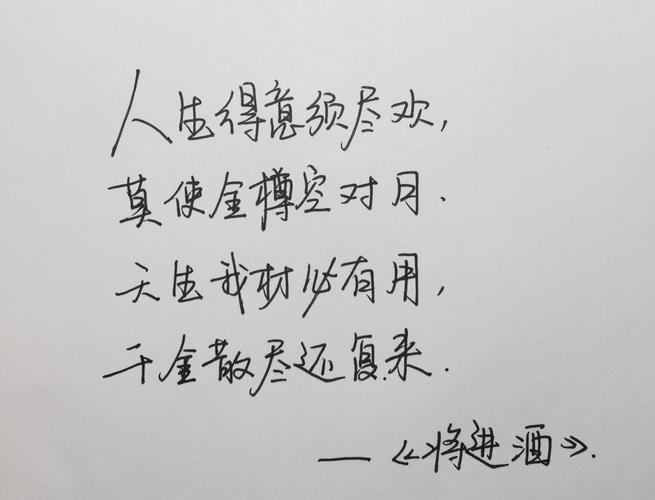 人生得意须尽欢,
莫使金樽空对月.
天生我材必有用,
千金散尽还复来.
——《将进酒》.